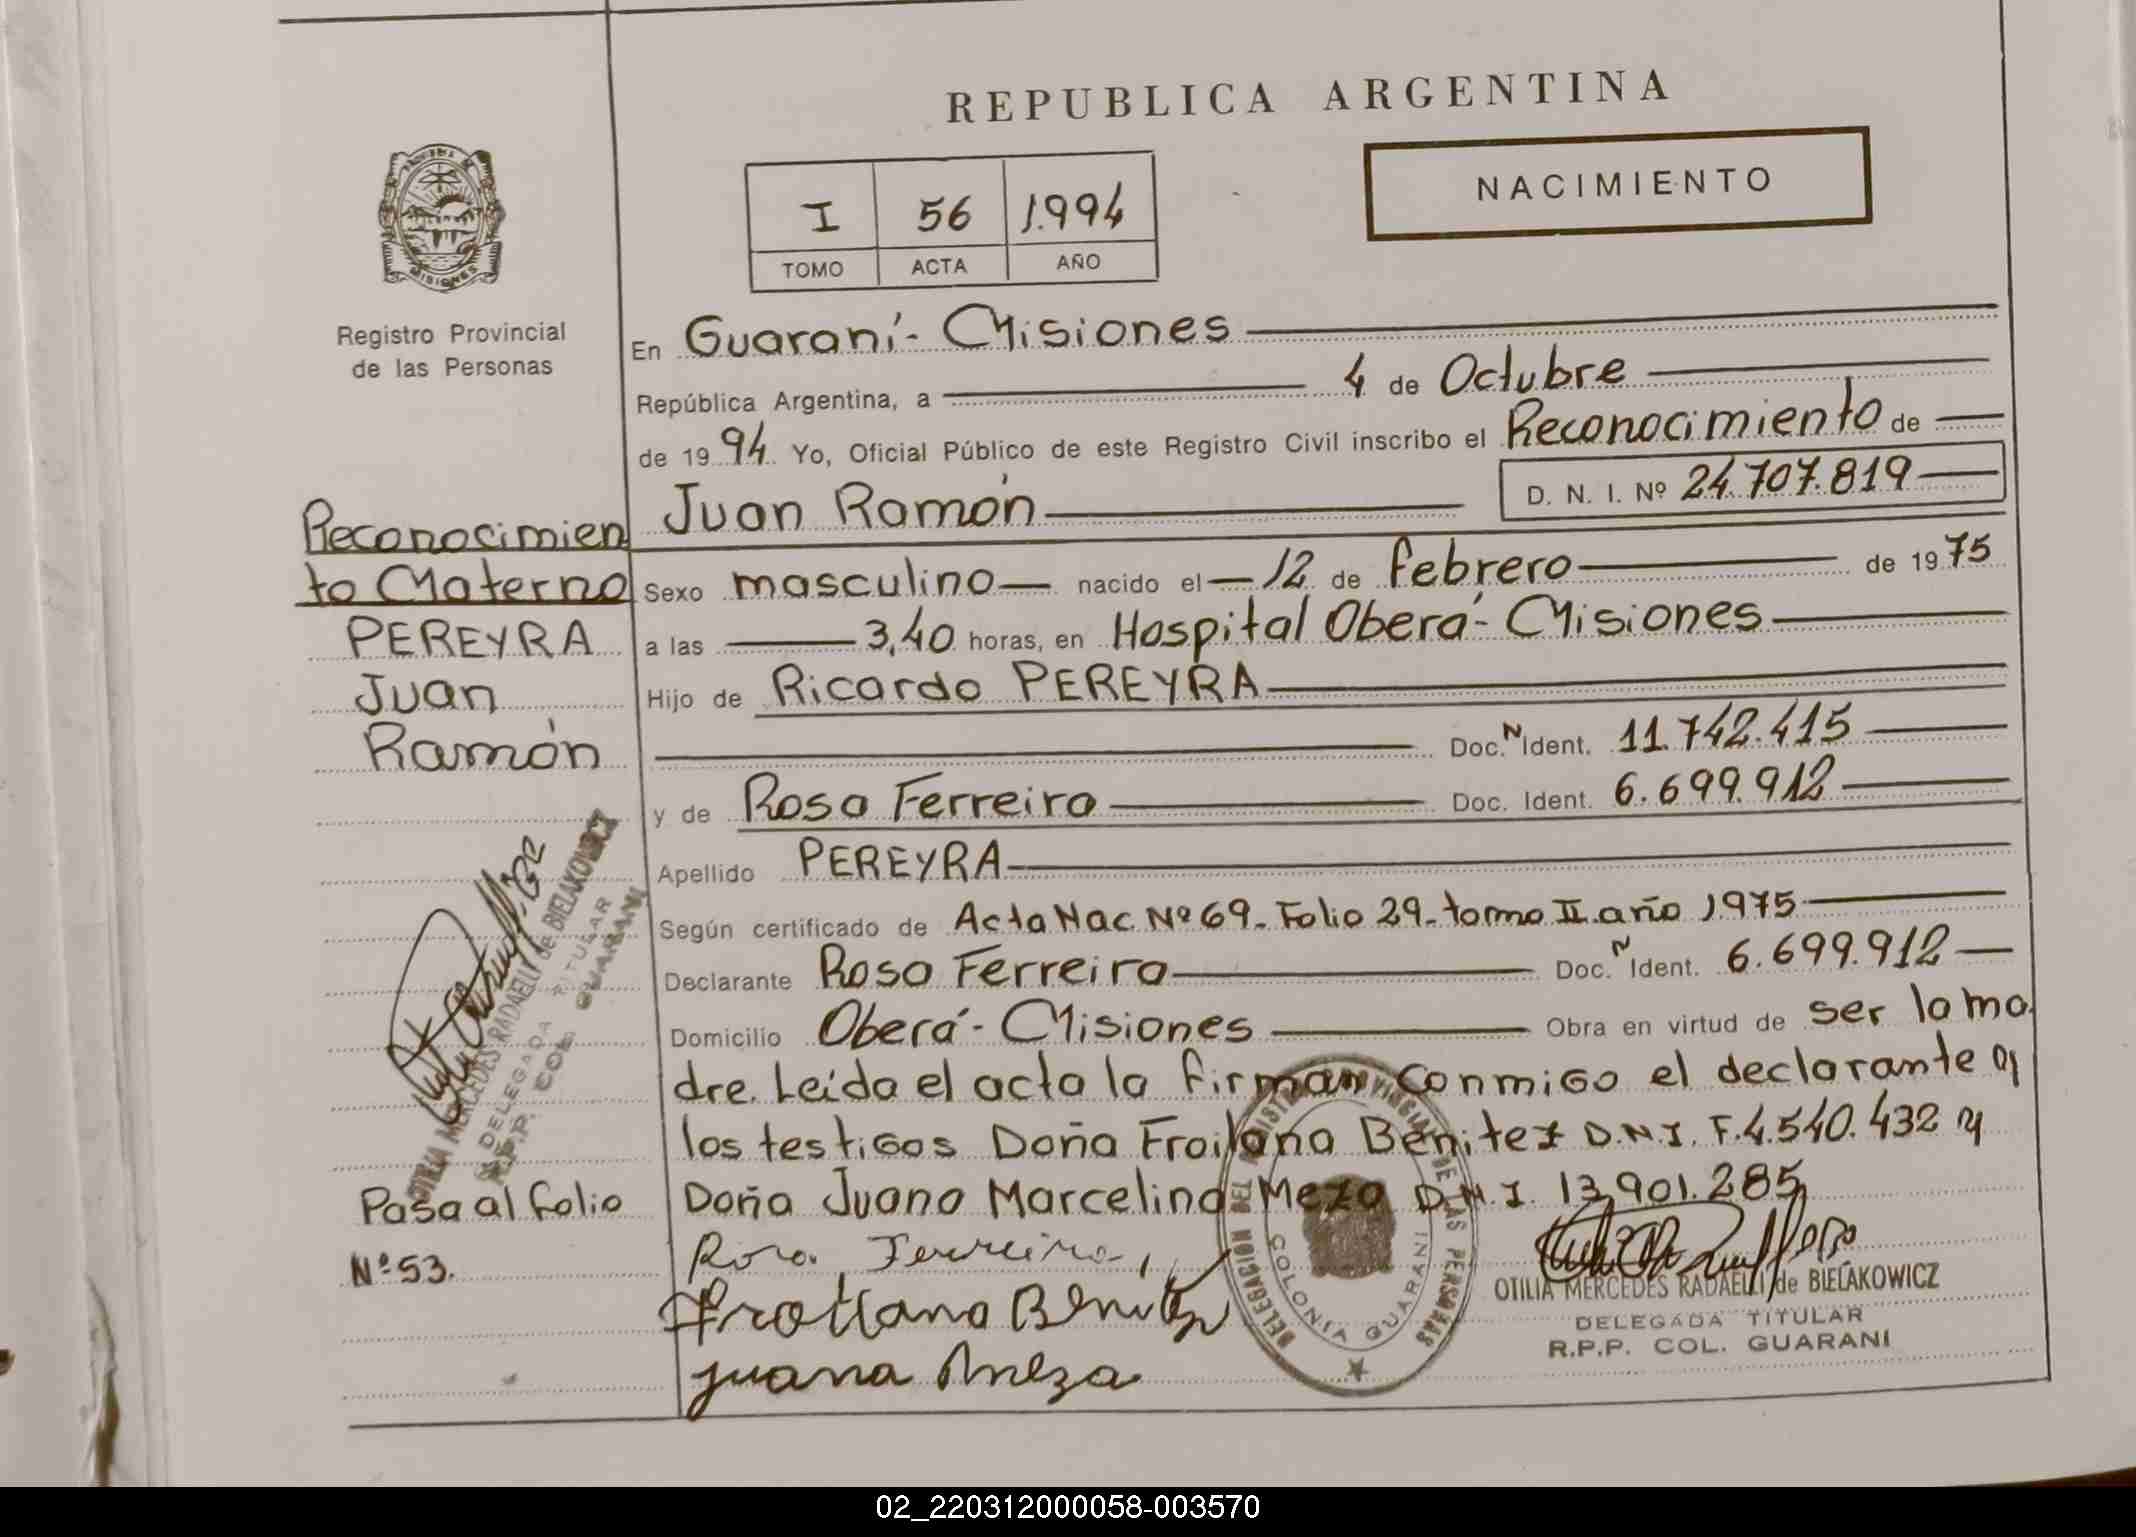 REPUBLICA ARGENTINA
NACIMIENTO
I 56 1.994
TOMO ACTA AÑO
MISIONES
Registro Provincial
de las Personas
En Guaraní- Misiones
República Argentina, a 4 de Octubre
de 1994 Yo, Oficial Público de este Registro Civil inscribo el Reconocimiento de
Juan Ramón D. N. I. Nº 24.707.819
Reconocimien
to Materno
PEREYRA
Juan
Ramón
Sexo masculino nacido el 12 de febrero de 1975
a las 3,40 horas, en Hospital Oberá- Misiones
Hijo de Ricardo PEREYRA
Doc. N Ident. 11.742.415
y de Rosa Ferreira Doc. Ident. 6.699.912
Apellido PEREYRA
Según certificado de Acta Nac Nº 69- Folio 29- tomo II. año 1975
Declarante Rosa Ferreira Doc. N Ident. 6.699.912
Domicilio Oberá- Misiones Obra en virtud de ser la ma
dre. Leída el acta la firman conmigo el declarante y
los testigos Doña Froilana Benitez D.N.I. F.4.540.432 y
Doña Juana Marcelina Meza D.N.I. 13,901.285
OTILIA MERCEDES RADAELLI de BIELAKOWICZ
DELEGADA TITULAR
R.P.P. COL. GUARANI
Pasa al folio
Nº 53.
Rosa Ferreira,
Froilana Benitez
Juana Meza
DELEGACION DEL REGISTRO PROVINCIAL DE LAS PERSONAS
COLONIA GUARANI
OTILIA MERCEDES RADAELLI de BIELAKOWICZ
DELEGADA TITULAR
R.P.P. COL. GUARANI
02_220312000058-003570